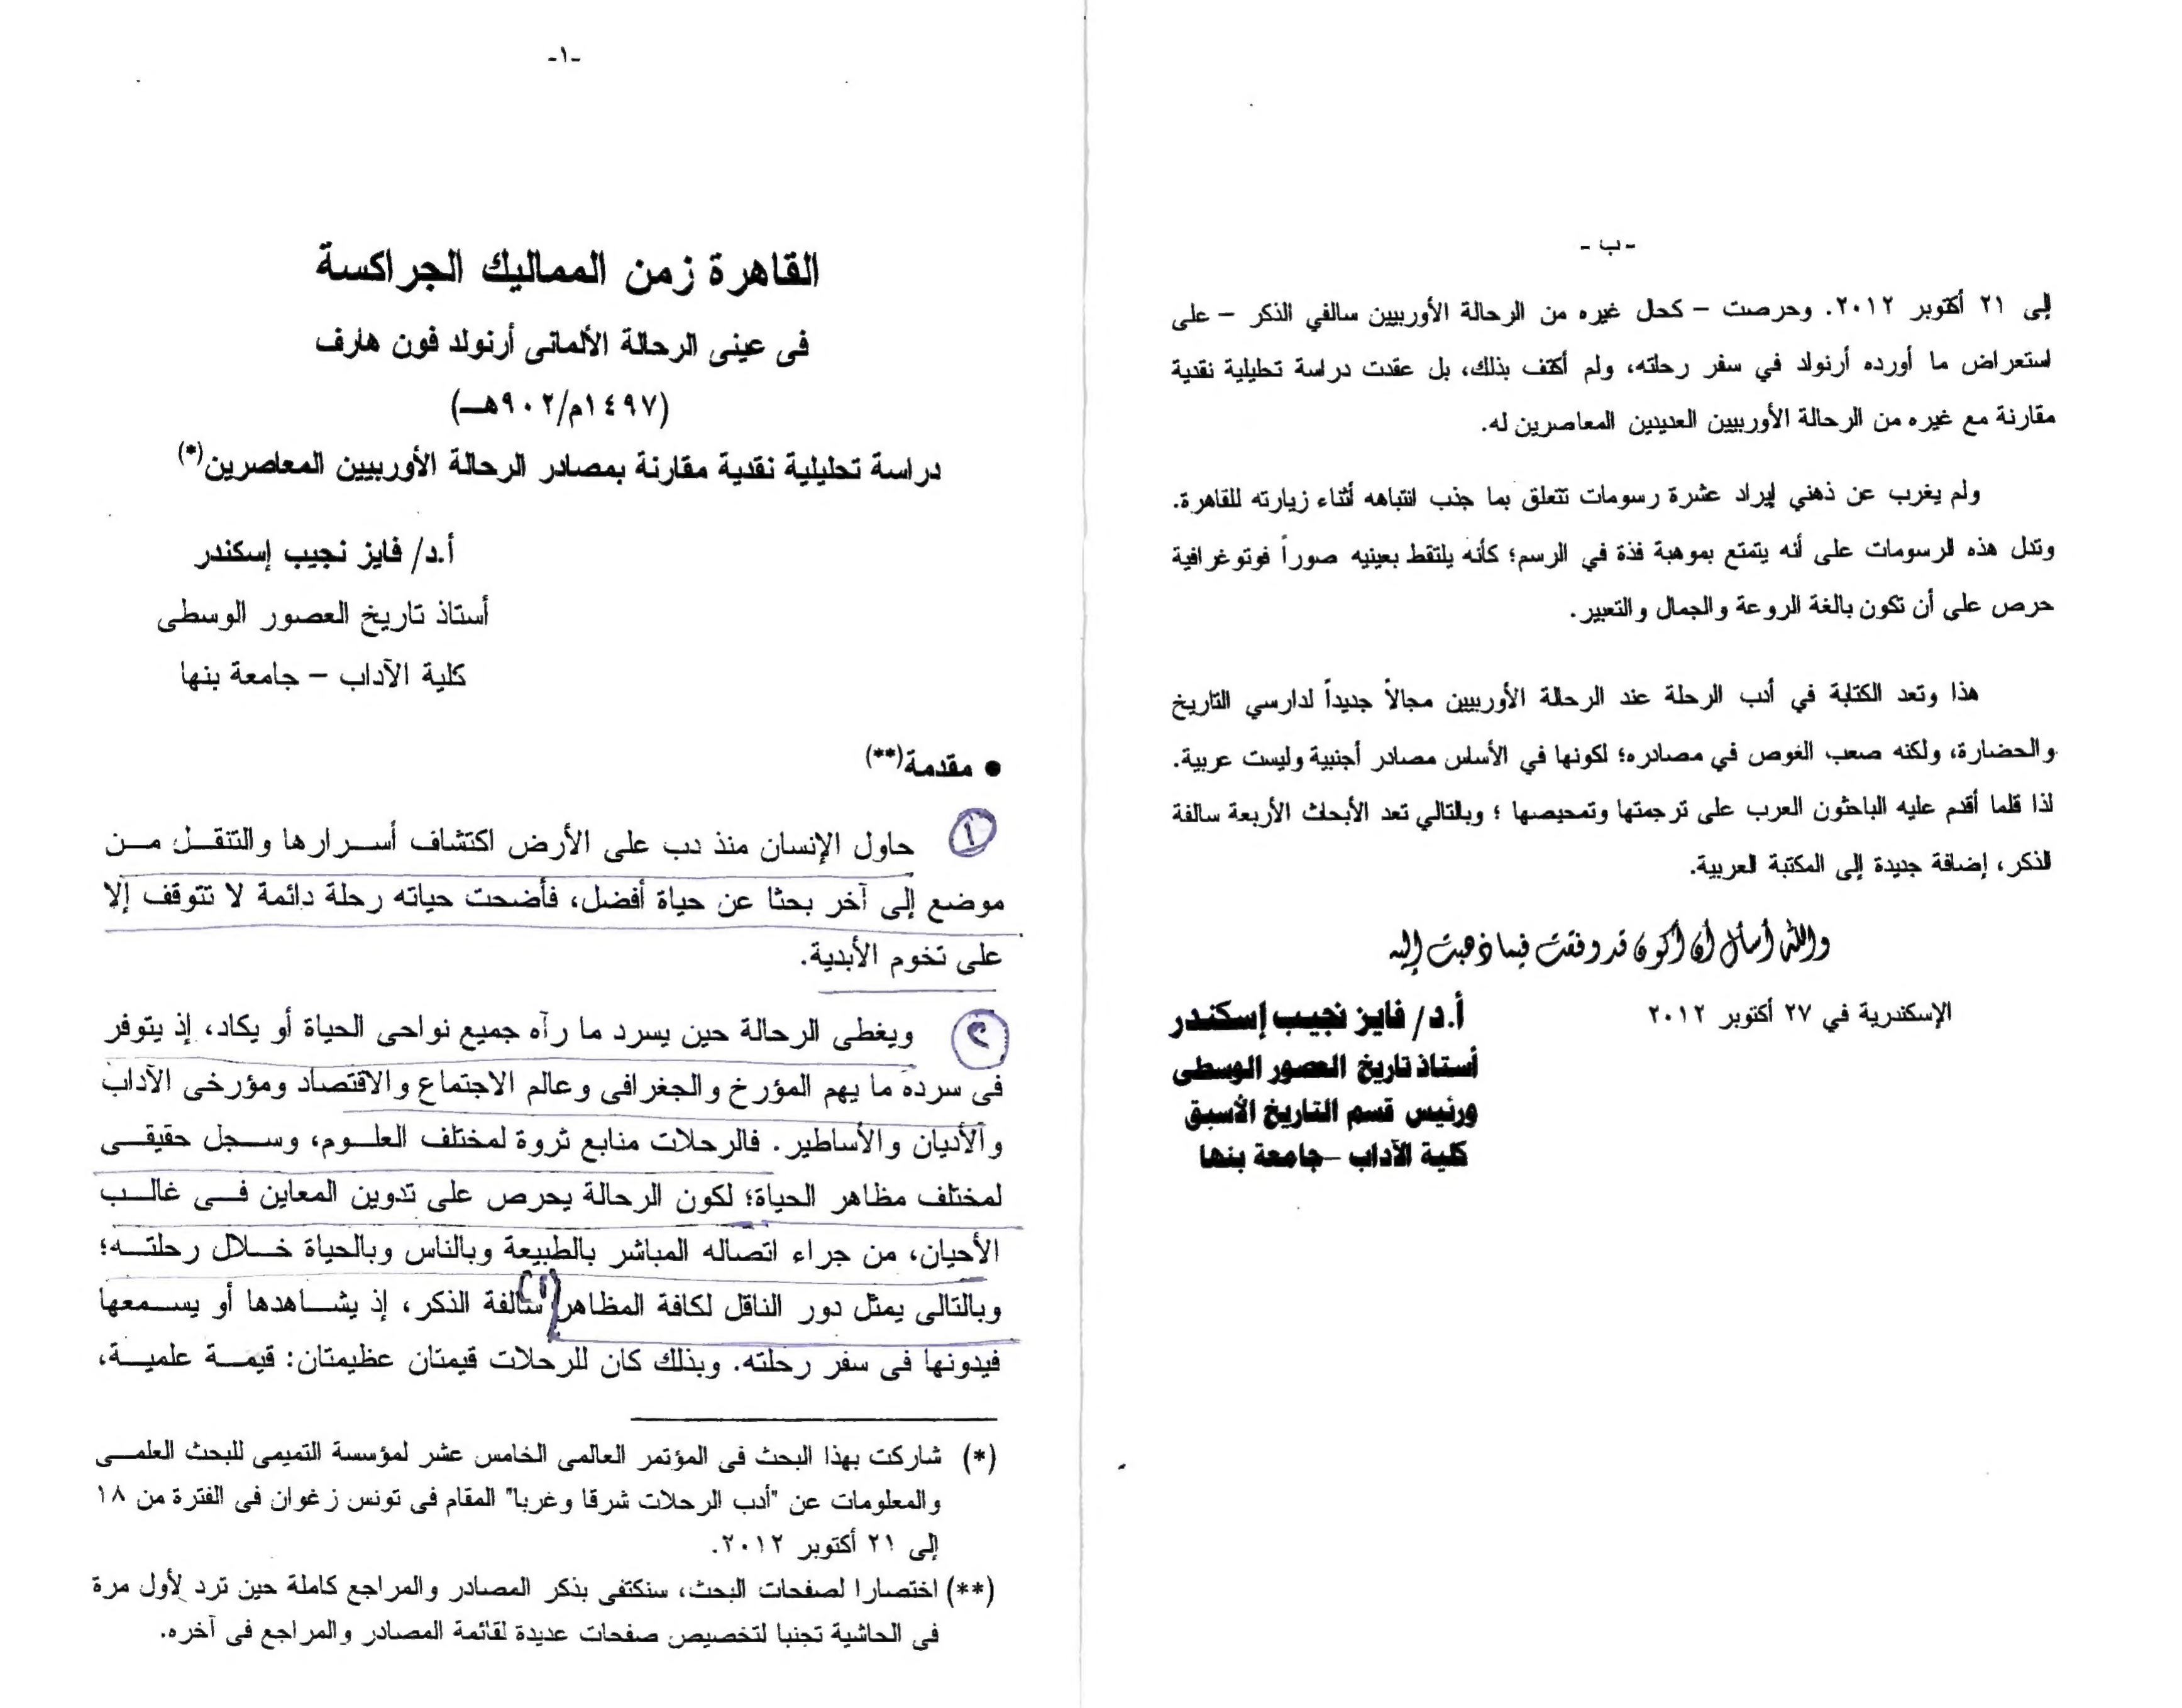 - ب -
إلى ٢١ أكتوبر ٢٠١٢. وحرصت – كحل غيره من الرحالة الأوربيين سالفي الذكر – على
استعراض ما أورده أرنولد في سفر رحلته، ولم أكتف بذلك، بل عقدت دراسة تحليلية نقدية
مقارنة مع غيره من الرحالة الأوربيين العديدين المعاصرين له.
ولم يغرب عن ذهني إيراد عشرة رسومات تتعلق بما جذب انتباهه أثناء زيارته للقاهرة.
وتدل هذه الرسومات على أنه يتمتع بموهبة فذة في الرسم؛ كأنه يلتقط بعينيه صوراً فوتوغرافية
حرص على أن تكون بالغة الروعة والجمال والتعبير.
هذا وتعد الكتابة في أدب الرحلة عند الرحالة الأوربيين مجالاً جديداً لدارسي التاريخ
والحضارة، ولكنه صعب الغوص في مصادره؛ لكونها في الأساس مصادر أجنبية وليست عربية.
لذا قلما أقدم عليه الباحثون العرب على ترجمتها وتمحيصها ؛ وبالتالي تعد الأبحاث الأربعة سالفة
الذكر، إضافة جديدة إلى المكتبة العربية.
والله أسأل أن أكون قد وفقت فيما ذهبت إليه
الإسكندرية في ٢٧ أكتوبر ٢٠١٢
أ.د/ فايز نجيب إسكندر
أستاذ تاريخ العصور الوسطى
ورئيس قسم التاريخ الأسبق
كلية الآداب –جامعة بنها
-١-
القاهرة زمن المماليك الجراكسة
فى عينى الرحالة الألمانى أرنولد فون هارف
(١٤٩٧م/٩٠٢هـ)
دراسة تحليلية نقدية مقارنة بمصادر الرحالة الأوربيين المعاصرين(*)
أ.د/ فايز نجيب إسكندر
أستاذ تاريخ العصور الوسطى
كلية الآداب – جامعة بنها
• مقدمة(**)
١ حاول الإنسان منذ دب على الأرض اكتشاف أسرارها والتنقل من
موضع إلى آخر بحثا عن حياة أفضل، فأضحت حياته رحلة دائمة لا تتوقف إلا
على تخوم الأبدية.
٢ ويغطى الرحالة حين يسرد ما رآه جميع نواحى الحياة أو يكاد، إذ يتوفر
فى سرده ما يهم المؤرخ والجغرافى وعالم الاجتماع والاقتصاد ومؤرخى الآداب
والأديان والأساطير. فالرحلات منابع ثروة لمختلف العلوم، وسجل حقيقى
لمختلف مظاهر الحياة؛ لكون الرحالة يحرص على تدوين المعاين فى غالب
الأحيان، من جراء اتصاله المباشر بالطبيعة وبالناس وبالحياة خلال رحلته؛
وبالتالى يمثل دور الناقل لكافة المظاهر (١) سالفة الذكر، إذ يشاهدها أو يسمعها
فيدونها فى سفر رحلته. وبذلك كان للرحلات قيمتان عظيمتان: قيمة علمية،
(*) شاركت بهذا البحث فى المؤتمر العالمى الخامس عشر لمؤسسة التميمى للبحث العلمى
والمعلومات عن "أدب الرحلات شرقا وغربا" المقام فى تونس زغوان فى الفترة من ١٨
إلى ٢١ أكتوبر ٢٠١٢.
(**) اختصارا لصفحات البحث، سنكتفى بذكر المصادر والمراجع كاملة حين ترد لأول مرة
فى الحاشية تجنبا لتخصيص صفحات عديدة لقائمة المصادر والمراجع فى آخره.